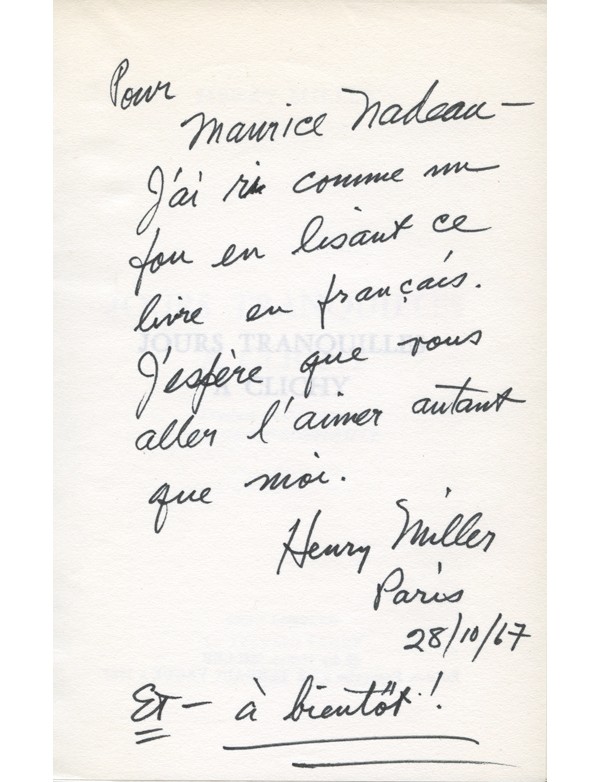 Pour
Maurice Nadeau —
J'ai ri comme un
fou en lisant ce
livre en français.
JOURS TRANQUILLES
J'espère que vous
À CLICHY
aller l'aimer autant
que moi.
Henry Miller
Paris
28/10/67
Et — à bientôt !